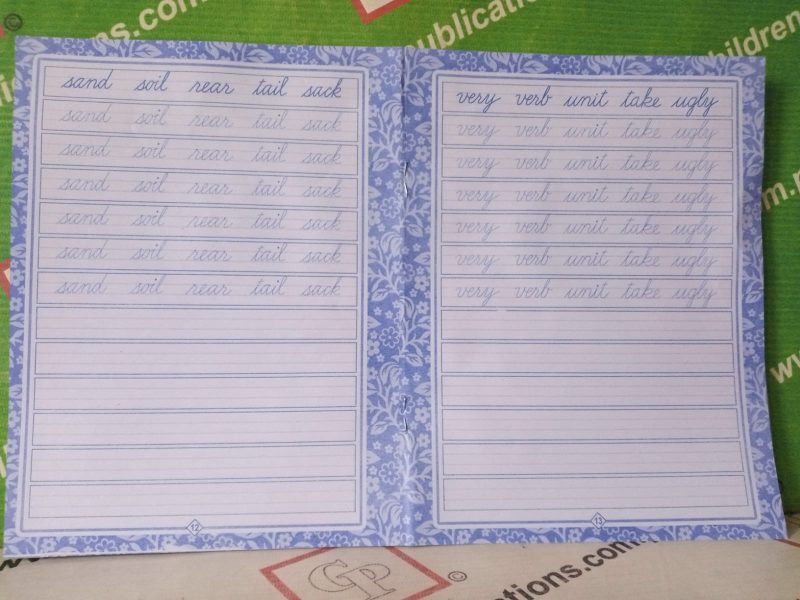 ©
publications.com
childrenp
sand soil rear tail sack
sand soil rear tail sack
sand soil rear tail sack
sand soil rear tail sack
sand soil rear tail sack
sand soil rear tail sack
sand soil rear tail sack
12
very verb unit take ugly
very verb unit take ugly
very verb unit take ugly
very verb unit take ugly
very verb unit take ugly
very verb unit take ugly
very verb unit take ugly
13
GP ©
ications.com